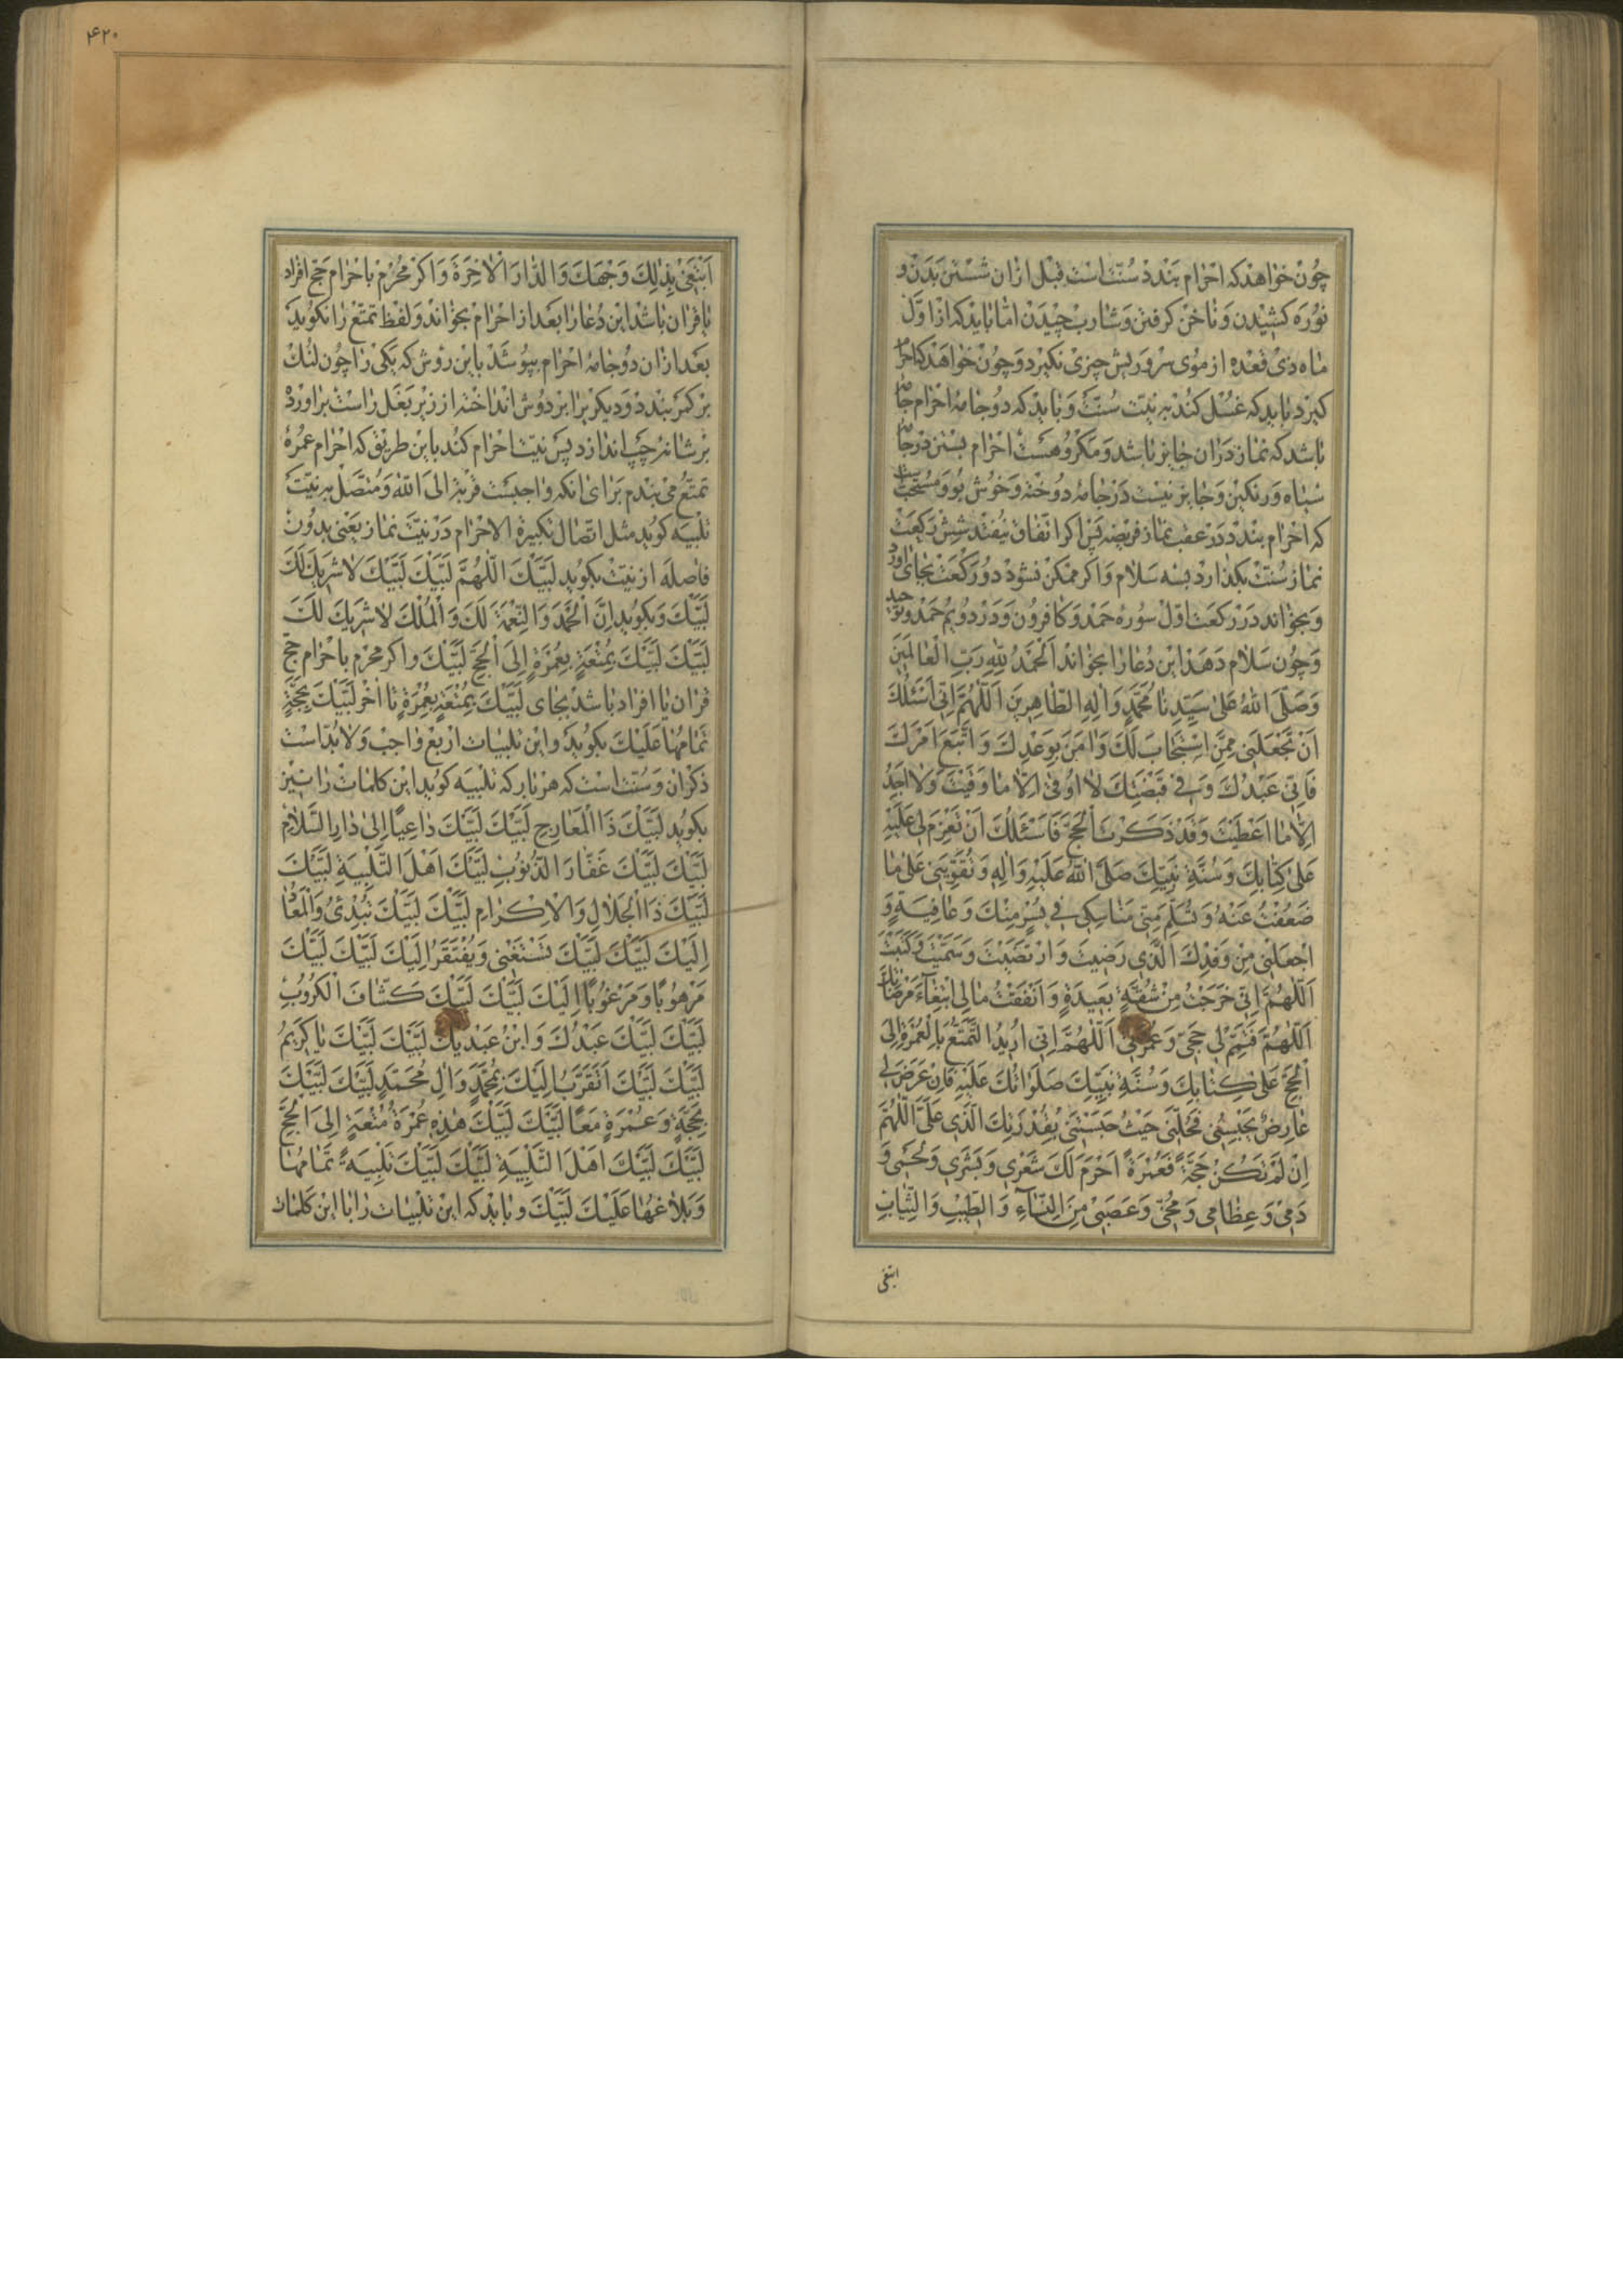 چون خواهد که احرام بندد سنّت است قبل ازان شستن بدن و
نوره کشیدن و ناخن کرفتن و شارب چیدن امّا باید که از اوّل
ماه ذی قعده از موی سر و ریش چیزی نکیرد و چون خواهد که احرام
کیرد باید که غسل کند به نیّت سنّت و باید که دو جامهٔ احرام
باشد که نماز دران جایز باشد و مکروهست احرام بستن در جامهٔ
سیاه و رنکین و جایز نیست در جامهٔ دوخته و خوش بو و مستحبّست
که احرام بندد در عقب نماز فریضه پس اکر اتّفاق نیفتد شش رکعت
نماز سنّت بکذارد بسه سلام و اکر ممکن نشود دو رکعت بجای آورد
و بخواند در رکعت اوّل سوره حمد و کافرون و در دویم حمد و توحید
و چون سلام دهد این دعا را بخواند اَلْحَمْدُ لِلّهِ رَبِّ الْعالَمینَ
وَصَلَّی اللّهُ عَلی سَیِّدِنا مُحَمَّدٍ وَالِهِ الطّاهِرینَ اَللّهُمَّ اِنّی اَسْئَلُکَ
اَنْ تَجْعَلَنی مِمَّنِ اسْتَجابَ لَکَ وَامَنَ بِوَعْدِکَ وَاتَّبَعَ اَمْرَکَ
فَاِنّی عَبْدُکَ وَفی قَبْضَتِکَ لا اُوقی اِلّا ما وَقَیْتَ وَلا اجِدُ
اِلّا ما اَعْطَیْتَ وَقَدْ ذَکَرْتَ الْحَجَّ فَاَسْئَلُکَ اَنْ تَعْزِمَ لی عَلَیْهِ
عَلی کِتابِکَ وَسُنَّةِ نَبِیِّکَ صَلَّی اللّهُ عَلَیْهِ وَالِهِ وَتُقَوِّیَنی عَلی ما
ضَعُفْتُ عَنْهُ وَتُسَلِّمَ مِنّی مَناسِکی فی یُسْرٍ مِنْکَ وَعافِیَةٍ وَ
اجْعَلْنی مِنْ وَفْدِکَ الَّذی رَضیتَ وَارْتَضَیْتَ وَسَمَّیْتَ وَکَتَبْتَ
اَللّهُمَّ اِنّی خَرَجْتُ مِنْ شُقَّةٍ بَعیدَةٍ وَاَنْفَقْتُ مالی ابْتِغاءَ مَرْضاتِکَ
اَللّهُمَّ فَتَمِّمْ لی حَجّی وَعُمْرَتی اَللّهُمَّ اِنّی اُریدُ التَّمَتُّعَ بِالْعُمْرَةِ اِلَی
الْحَجِّ عَلی کِتابِکَ وَسُنَّةِ نَبِیِّکَ صَلَواتُکَ عَلَیْهِ فَاِنْ عَرَضَ لی
عارِضٌ یَحْبِسُنی فَحُلَّنی حَیْثُ حَبَسْتَنی بِقُدْرَتِکَ الَّذی عَلَیَّ اَللّهُمَّ
اِنْ لَمْ تَکُنْ حَجَّةً فَعُمْرَةً اَحْرَمَ لَکَ شَعْری وَبَشَری وَلَحْمی وَ
دَمی وَعِظامی وَمُخّی وَعَصَبی مِنَ النِّساءِ وَالطّیبِ وَالثِّیابِ
ابتغی
۴۲۰
اَبْتَغی بِذلِکَ وَجْهَکَ وَالدّارَ الْاخِرَةَ و اکر محرم باحرام حجّ افراد
یا قران باشد این دعا را بعد از احرام بخواند و لفظ تمتّع را نکوید
بعد ازان دو جامهٔ احرام بپوشد باین روش که یکی را چون لنک
بر کمر بندد و دیکر برا بر دوش انداخته از زیر بغل راست براورده
بر شانه چپ اندازد پس نیّت احرام کند باین طریق که احرام عمرهٔ
تمتّع می بندم برای انکه واجبست قربة الی اللّه و متّصل به نیّت
تلبیه کوید مثل اتّصال تکبیرة الاحرام در نیّت نماز یعنی بدون
فاصله از نیّت بکوید لَبَّیْکَ اللّهُمَّ لَبَّیْکَ لَبَّیْکَ لا شَریکَ لَکَ
لَبَّیْکَ و بکوید اِنَّ الْحَمْدَ وَالنِّعْمَةَ لَکَ وَالْمُلْکَ لا شَریکَ لَکَ
لَبَّیْکَ لَبَّیْکَ بِمُتْعَةٍ بِعُمْرَةٍ اِلَی الْحَجِّ لَبَّیْکَ و اکر محرم باحرام حجّ
قران یا افراد باشد بجای لَبَّیْکَ بِمُتْعَةٍ بِعُمْرَةٍ تا اخر لَبَّیْکَ بِحَجَّةٍ
تَمامُها عَلَیْکَ بکوید و این تلبیات اربع واجب و لابدّاست
ذکران و سنّت است که هر بار که تلبیه کوید این کلمات را نیز
بکوید لَبَّیْکَ ذَا الْمَعارِجِ لَبَّیْکَ لَبَّیْکَ داعِیًا اِلی دارِ السَّلامِ
لَبَّیْکَ لَبَّیْکَ غَفّارَ الذُّنُوبِ لَبَّیْکَ اَهْلَ التَّلْبِیَةِ لَبَّیْکَ
لَبَّیْکَ ذَا الْجَلالِ وَالْاِکْرامِ لَبَّیْکَ لَبَّیْکَ تُبْدِئُ وَالْمَعادُ
اِلَیْکَ لَبَّیْکَ لَبَّیْکَ تَسْتَغْنی وَیُفْتَقَرُ اِلَیْکَ لَبَّیْکَ لَبَّیْکَ
مَرْهُوبًا وَمَرْغُوبًا اِلَیْکَ لَبَّیْکَ لَبَّیْکَ کَشّافَ الْکُرُوبِ
لَبَّیْکَ لَبَّیْکَ عَبْدُکَ وَابْنُ عَبْدَیْکَ لَبَّیْکَ لَبَّیْکَ یا کَریمُ
لَبَّیْکَ لَبَّیْکَ اَتَقَرَّبُ اِلَیْکَ بِمُحَمَّدٍ وَالِ مُحَمَّدٍ لَبَّیْکَ لَبَّیْکَ
بِحَجَّةٍ وَعُمْرَةٍ مَعًا لَبَّیْکَ لَبَّیْکَ هذِهِ عُمْرَةُ مُتْعَةٍ اِلَی الْحَجِّ
لَبَّیْکَ لَبَّیْکَ اَهْلَ التَّلْبِیَةِ لَبَّیْکَ لَبَّیْکَ تَلْبِیَةً تَمامُها
وَبَلاغُها عَلَیْکَ لَبَّیْکَ و باید که این تلبیات را با این کلمات